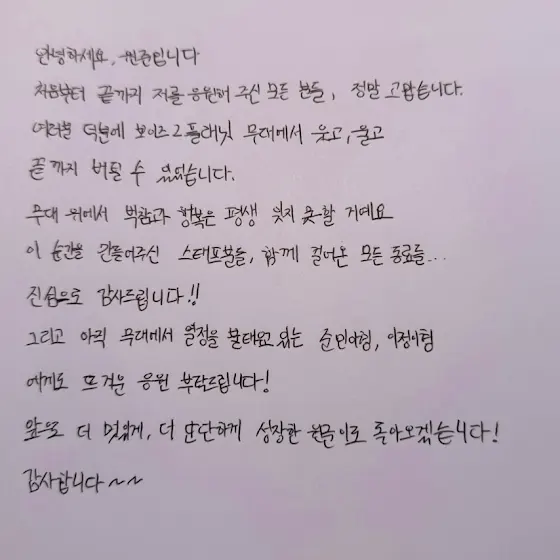 안녕하세요, 원준입니다
처음부터 끝까지 저를 응원해 주신 모든 분들, 정말 고맙습니다.
여러분 덕분에 보이즈 2 플래닛 무대에서 웃고, 울고
끝까지 버틸 수 있었습니다.
무대 위에서 벅참과 행복은 평생 잊지 못할 거예요
이 순간을 만들어주신 스태프분들, 함께 걸어온 모든 동료들...
진심으로 감사드립니다!!
그리고 아직 무대에서 열정을 불태우고 있는 이정이형
에게도 뜨거운 응원 부탁드립니다!
앞으로 더 멋있게, 더 단단하게 성장한 돌아오겠습니다!
감사합니다~~